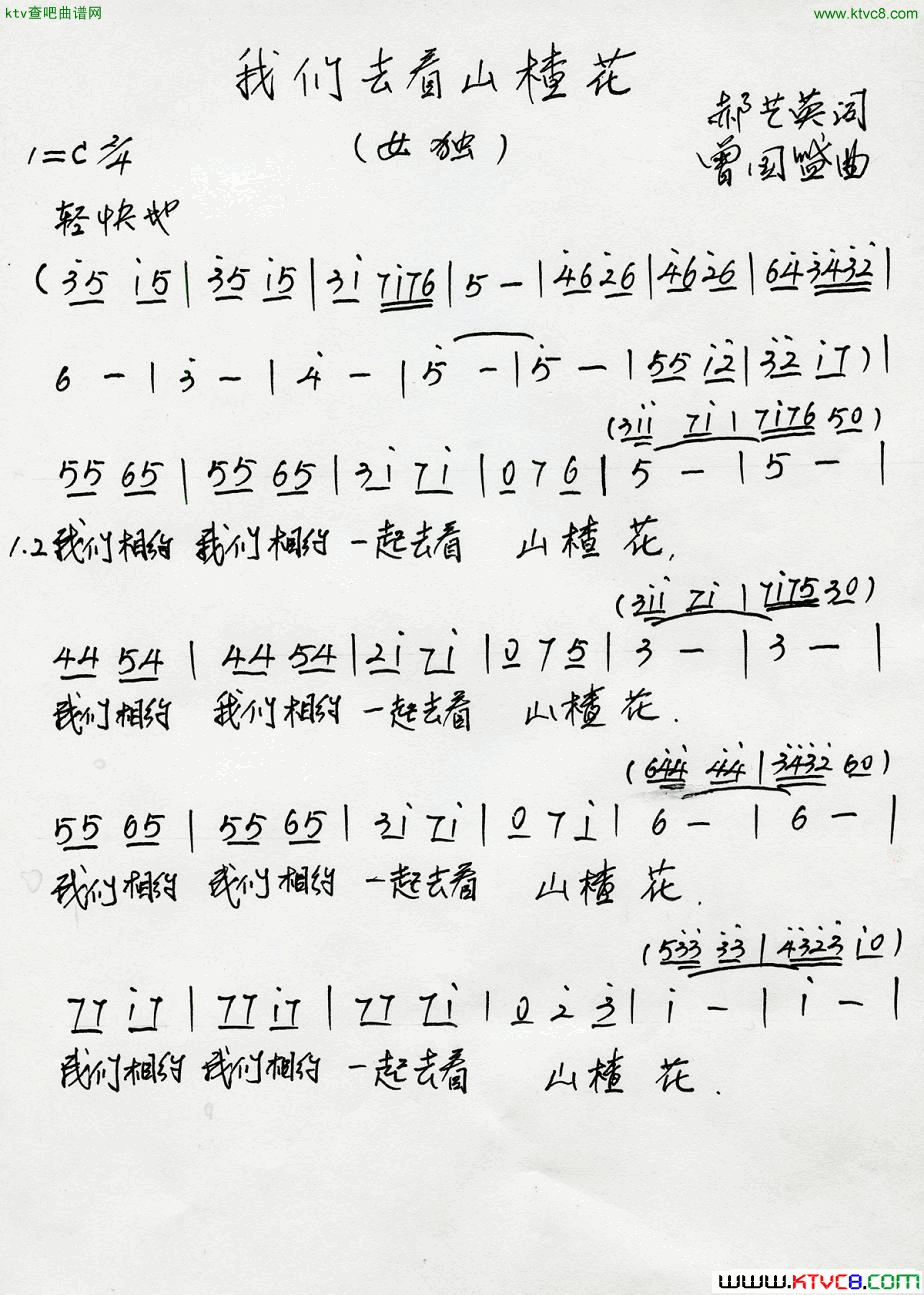 ktv查吧曲谱网 www.ktvc8.com
我们去看山楂花
(女独)
郝艺英词
1=C 2/4
曾国盛曲
轻快地
(3̇5 i5 | 3̇5 i5 | 3i 7i76 | 5 - | 4̇6 2̇6 | 4̇6 2̇6 | 64̇ 3̇4̇3̇2̇ |
6 - | 3̇ - | 4̇ - | 5̇ - | 5̇ - | 55 i2̇ | 3̇2̇ i7) |
(3ii 7i | 7i76 50)
55 65 | 55 65 | 3i 7i | 0 7 6 | 5 - | 5 - |
1.2我们相约 我们相约 一起去看 山楂花,
(3ii 7i | 7i75 30)
44 54 | 44 54 | 2i 7i | 0 7 5 | 3 - | 3 - |
我们相约 我们相约 一起去看 山楂花.
(64̇4̇ 4̇4̇ | 3̇4̇3̇2̇ 60)
55 65 | 55 65 | 3i 7i | 0 7 i | 6 - | 6 - |
我们相约 我们相约 一起去看 山楂花.
(53̇3̇ 3̇3̇ | 4̇3̇2̇3̇ i0)
77 i7 | 77 i7 | 77 7i | 0 2̇ 3̇ | i - | i - |
我们相约 我们相约 一起去看 山楂花.
www.KTVC8.com